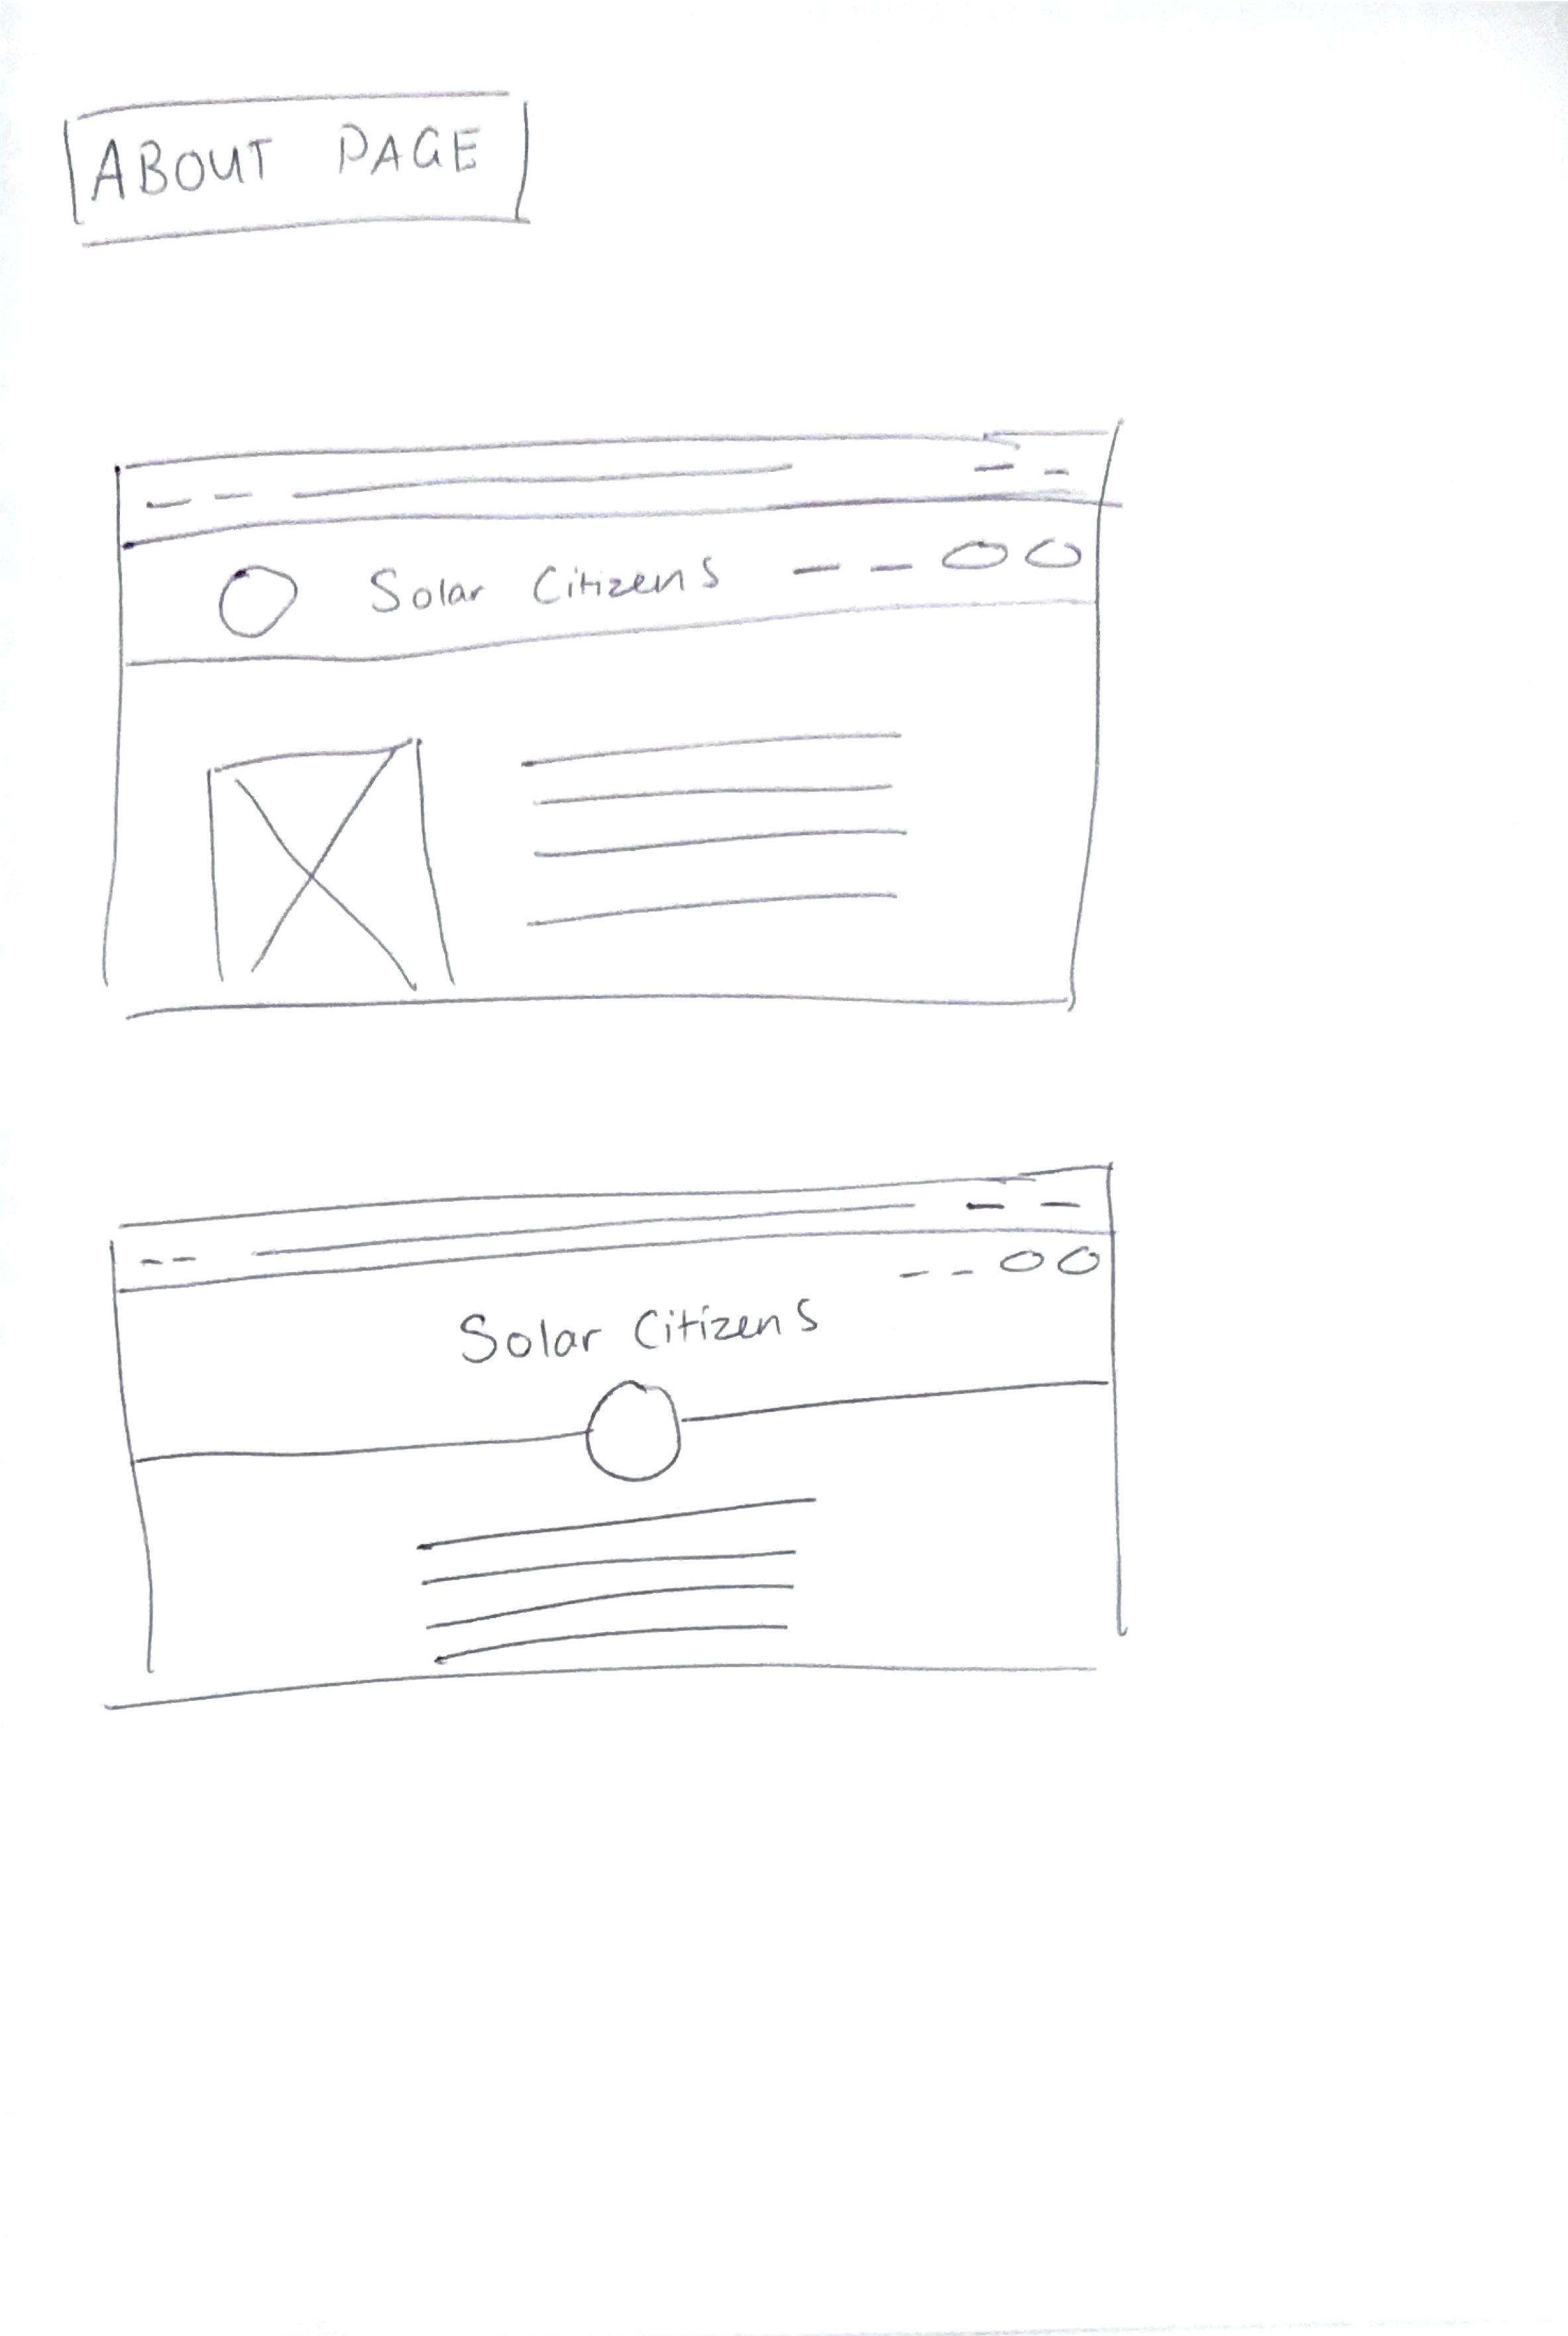 ABOUT PAGE
Solar Citizens
Solar Citizens